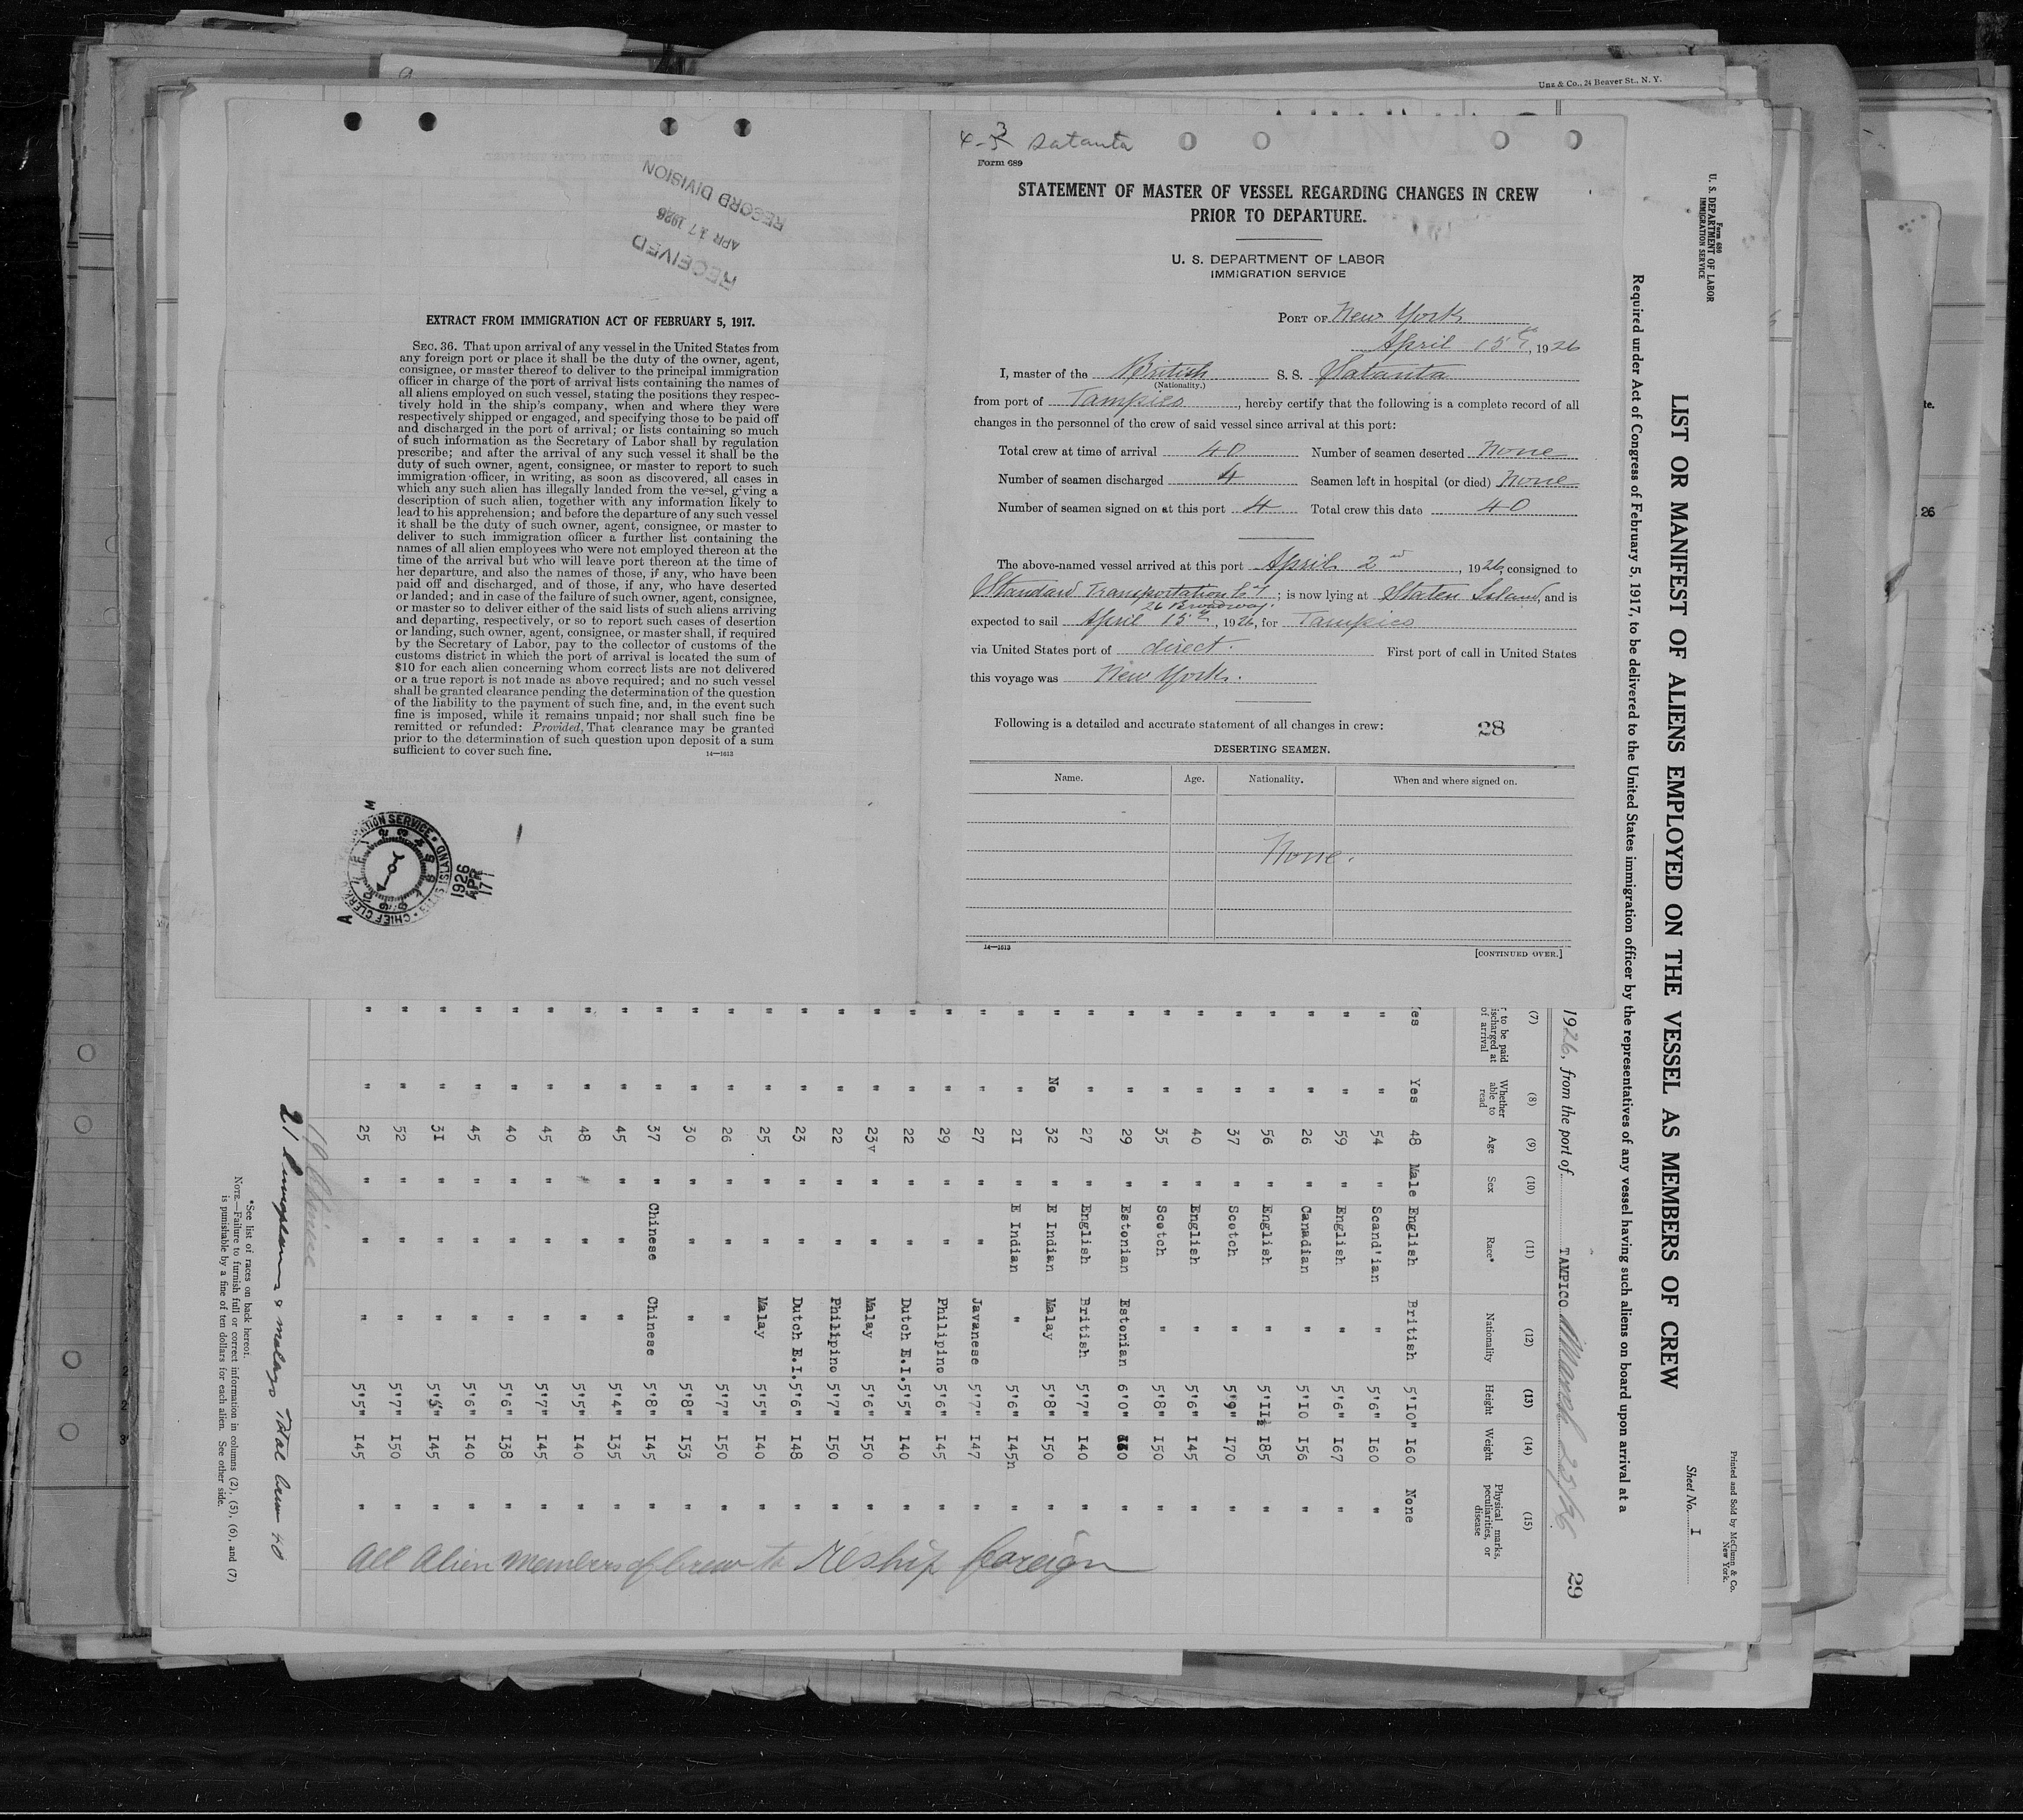 Unz & Co., 24 Beaver St., N. Y.
RECORD DIVISION
APR 17 1926
RECEIVED
EXTRACT FROM IMMIGRATION ACT OF FEBRUARY 5, 1917.
SEC. 36. That upon arrival of any vessel in the United States from
any foreign port or place it shall be the duty of the owner, agent,
consignee, or master thereof to deliver to the principal immigration
officer in charge of the port of arrival lists containing the names of
all aliens employed on such vessel, stating the positions they respec-
tively hold in the ship's company, when and where they were
respectively shipped or engaged, and specifying those to be paid off
and discharged in the port of arrival; or lists containing so much
of such information as the Secretary of Labor shall by regulation
prescribe; and after the arrival of any such vessel it shall be the
duty of such owner, agent, consignee, or master to report to such
immigration officer, in writing, as soon as discovered, all cases in
which any such alien has illegally landed from the vessel, giving a
description of such alien, together with any information likely to
lead to his apprehension; and before the departure of any such vessel
it shall be the duty of such owner, agent, consignee, or master to
deliver to such immigration officer a further list containing the
names of all alien employees who were not employed thereon at the
time of the arrival but who will leave port thereon at the time of
her departure, and also the names of those, if any, who have been
paid off and discharged, and of those, if any, who have deserted
or landed; and in case of the failure of such owner, agent, consignee,
or master so to deliver either of the said lists of such aliens arriving
and departing, respectively, or so to report such cases of desertion
or landing, such owner, agent, consignee, or master shall, if required
by the Secretary of Labor, pay to the collector of customs of the
customs district in which the port of arrival is located the sum of
$10 for each alien concerning whom correct lists are not delivered
or a true report is not made as above required; and no such vessel
shall be granted clearance pending the determination of the question
of the liability to the payment of such fine, and, in the event such
fine is imposed, while it remains unpaid; nor shall such fine be
remitted or refunded: Provided, That clearance may be granted
prior to the determination of such question upon deposit of a sum
sufficient to cover such fine.
14—1613
1926
APR
17
4-3 Satanta
Form 689
STATEMENT OF MASTER OF VESSEL REGARDING CHANGES IN CREW
PRIOR TO DEPARTURE.
U. S. DEPARTMENT OF LABOR
IMMIGRATION SERVICE
PORT OF New York
April 15th, 1926
I, master of the British S. S. Satanta
(Nationality.)
from port of Tampico, hereby certify that the following is a complete record of all
changes in the personnel of the crew of said vessel since arrival at this port:
Total crew at time of arrival 40 Number of seamen deserted None
Number of seamen discharged 4 Seamen left in hospital (or died) None
Number of seamen signed on at this port 4 Total crew this date 40
The above-named vessel arrived at this port April 2nd, 1926, consigned to
Standard Transportation Co; is now lying at Staten Island, and is
26 Broadway.
expected to sail April 15th, 1926, for Tampico
via United States port of direct. First port of call in United States
this voyage was New York.
Following is a detailed and accurate statement of all changes in crew: 28
DESERTING SEAMEN.
Name. Age. Nationality. When and where signed on.
None.
14—1613 [CONTINUED OVER.]
Form 686
U. S. DEPARTMENT OF LABOR
IMMIGRATION SERVICE
Printed and Sold by McClunn & Co.
New York.
LIST OR MANIFEST OF ALIENS EMPLOYED ON THE VESSEL AS MEMBERS OF CREW
Sheet No. I
Required under Act of Congress of February 5, 1917, to be delivered to the United States immigration officer by the representatives of any vessel having such aliens on board upon arrival at a
1926, from the port of TAMPICO March 25/26 29
(7) (8) (9) (10) (11) (12) (13) (14) (15)
to be paid
discharged at
of arrival
Whether
able to
read
Age
Sex
Race*
Nationality
Height
Weight
Physical marks,
peculiarities, or
disease
es Yes 48 Male English British 5'10" I60 None
" " 54 " Scand'ian " 5'6" I60 "
" " 59 " English " 5'6" I67 "
" " 26 " Canadian " 5'10 I56 "
" " 56 " English " 5'II½ I85 "
" " 37 " Scotch " 5'9" I70 "
" " 40 " English " 5'6" I45 "
" " 35 " Scotch " 5'8" I50 "
" " 29 " Estonian Estonian 6'0" "
" " 27 " English British 5'7" I40 "
" No 32 " E Indian Malay 5'8" I50 "
" " 2I " E Indian " 5'6" I45n "
" " 27 " " Javanese 5'7" I47 "
" " 29 " " Philipino 5'6" I45 "
" " 22 " " Dutch E.I. 5'5" I40 "
" " 23v " " Malay 5'6" I50 "
" " 22 " " Philipino 5'7" I50 "
" " 23 " " Dutch E.I. 5'6" I48 "
" " 25 " " Malay 5'5" I40 "
" " 26 " " " 5'7" I50 "
" " 30 " " " 5'8" I53 "
" " 37 " Chinese Chinese 5'8" I45 "
" " 45 " " " 5'4" I35 "
" " 48 " " " 5'5" I40 "
" " 45 " " " 5'7" I45 "
" " 40 " " " 5'6" I38 "
" " 45 " " " 5'6" I40 "
" " 3I " " " 5'5" I45 "
" " 52 " " " 5'7" I50 "
" " 25 " " " 5'5" I45 "
All Alien members of Crew to Reship foreign
19 Chinese
21 Europeans & malays Total Crew 40
*See list of races on back hereof.
NOTE.—Failure to furnish full or correct information in columns (2), (5), (6), and (7)
is punishable by a fine of ten dollars for each alien. See other side.